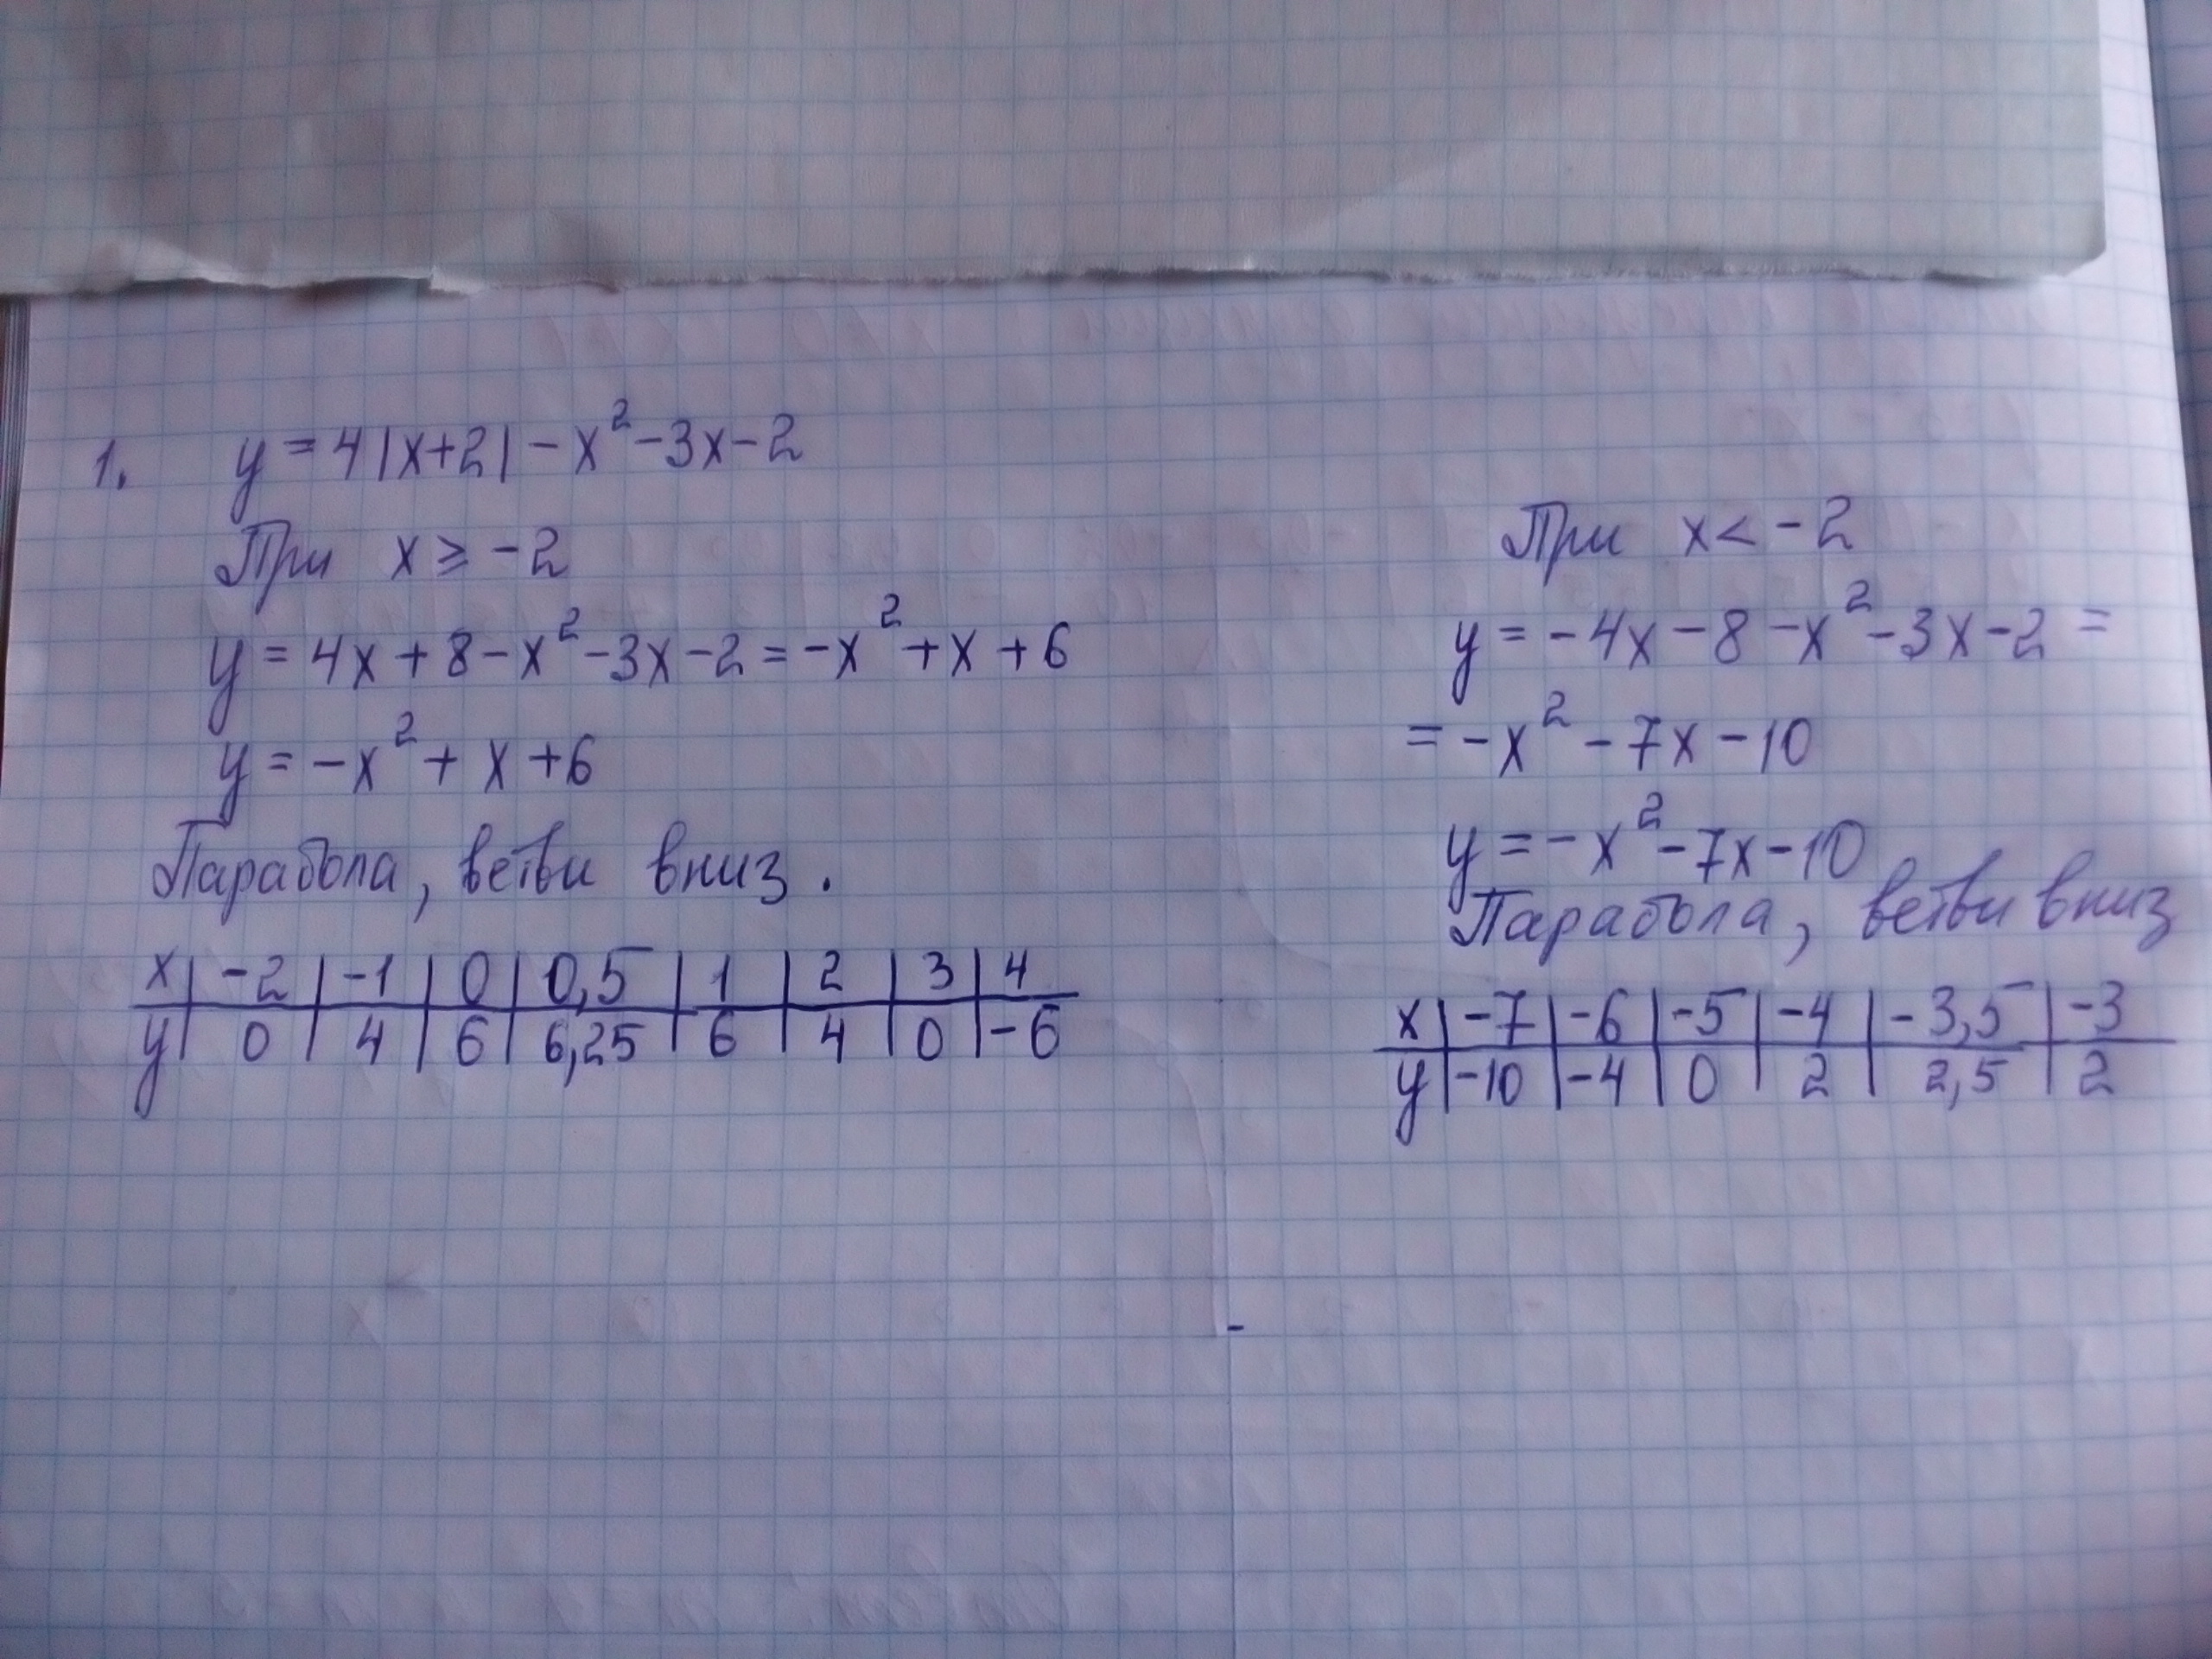 1. y = 4|x+2| - x² - 3x - 2
При x ≥ -2
y = 4x + 8 - x² - 3x - 2 = -x² + x + 6
y = -x² + x + 6
Парабола, ветви вниз.
x | -2 | -1 | 0 | 0,5 | 1 | 2 | 3 | 4
y | 0 | 4 | 6 | 6,25 | 6 | 4 | 0 | -6
При x < -2
y = -4x - 8 - x² - 3x - 2 =
= -x² - 7x - 10
y = -x² - 7x - 10
Парабола, ветви вниз
x | -7 | -6 | -5 | -4 | -3,5 | -3
y | -10 | -4 | 0 | 2 | 2,5 | 2